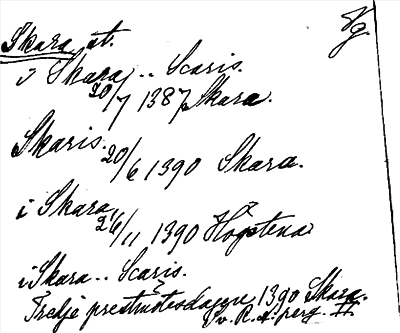 Vg.
Skara, st.
i Skara .. Scaris.
20/7 1387 Skara.
Skaris. 20/6 1390 Skara.
i Skara, 26/11 1390 Högstena
i Skara .. Scaris.
Tredje prestmötesdagen 1390 Skara.
Sv. R. A. perg. II